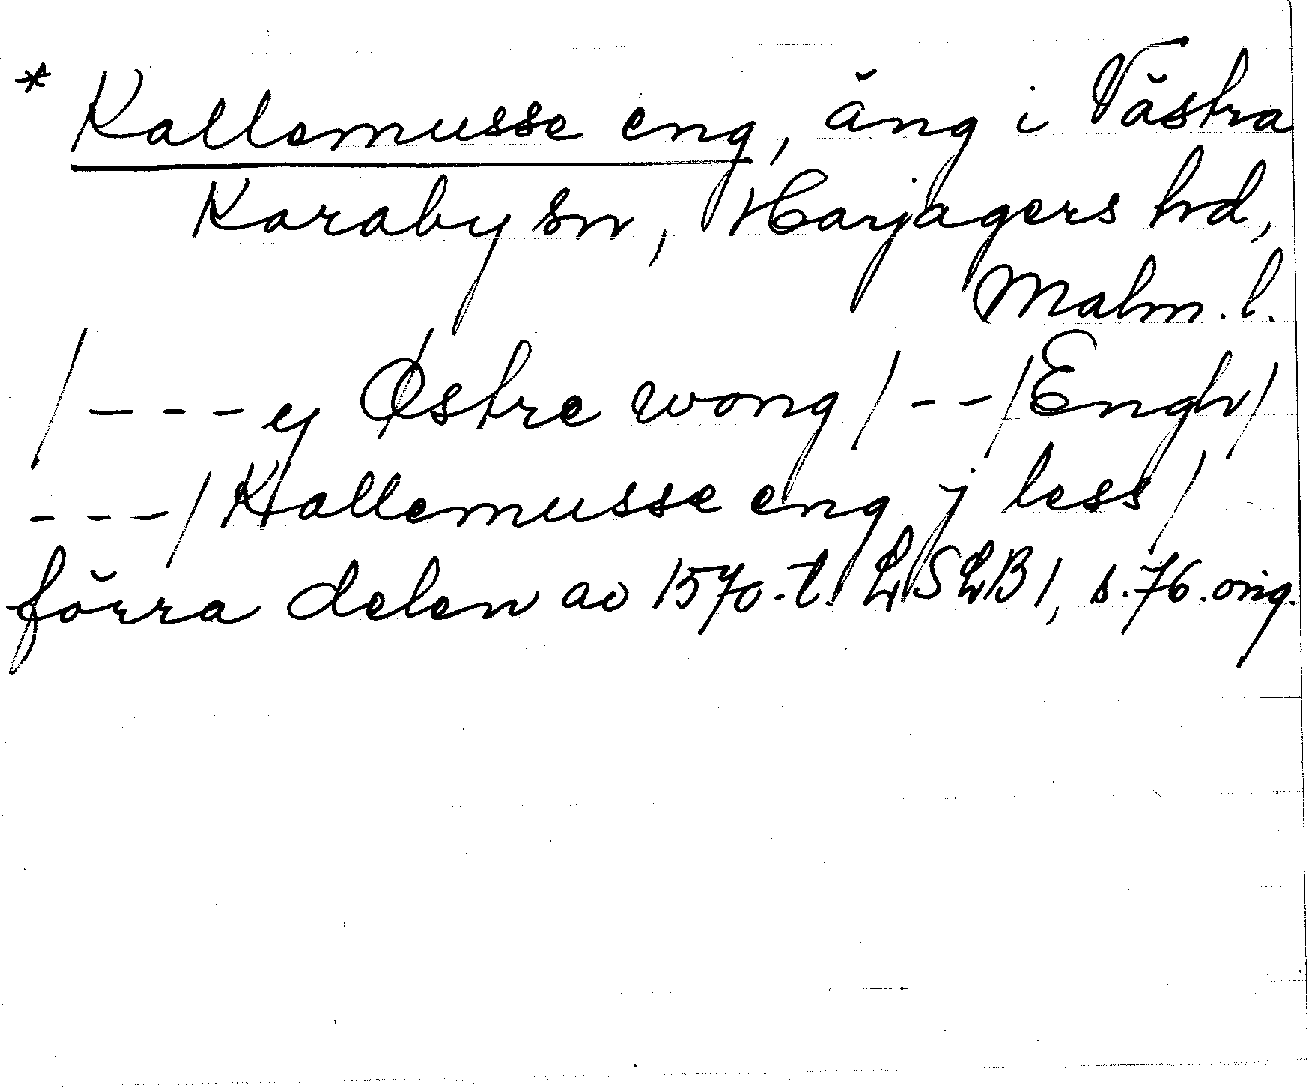 * Kallemusse eng, äng i Västra
Karaby sn, Harjagers hd,
Malm. l.
/---y Østre wong/--/Engh/
---/Kallemusse eng j less/
förra delen av 1570-t. LSLB1, s.76.orig.